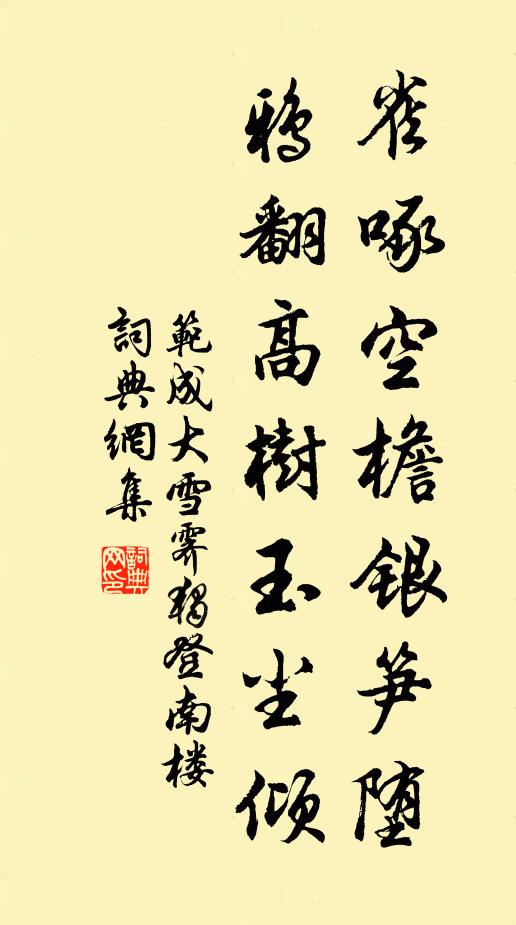 雀啄空檐银笋堕
鸦翻高樹玉尘倾
範成大雪霁獨登南楼
詞典網集
詞典网印